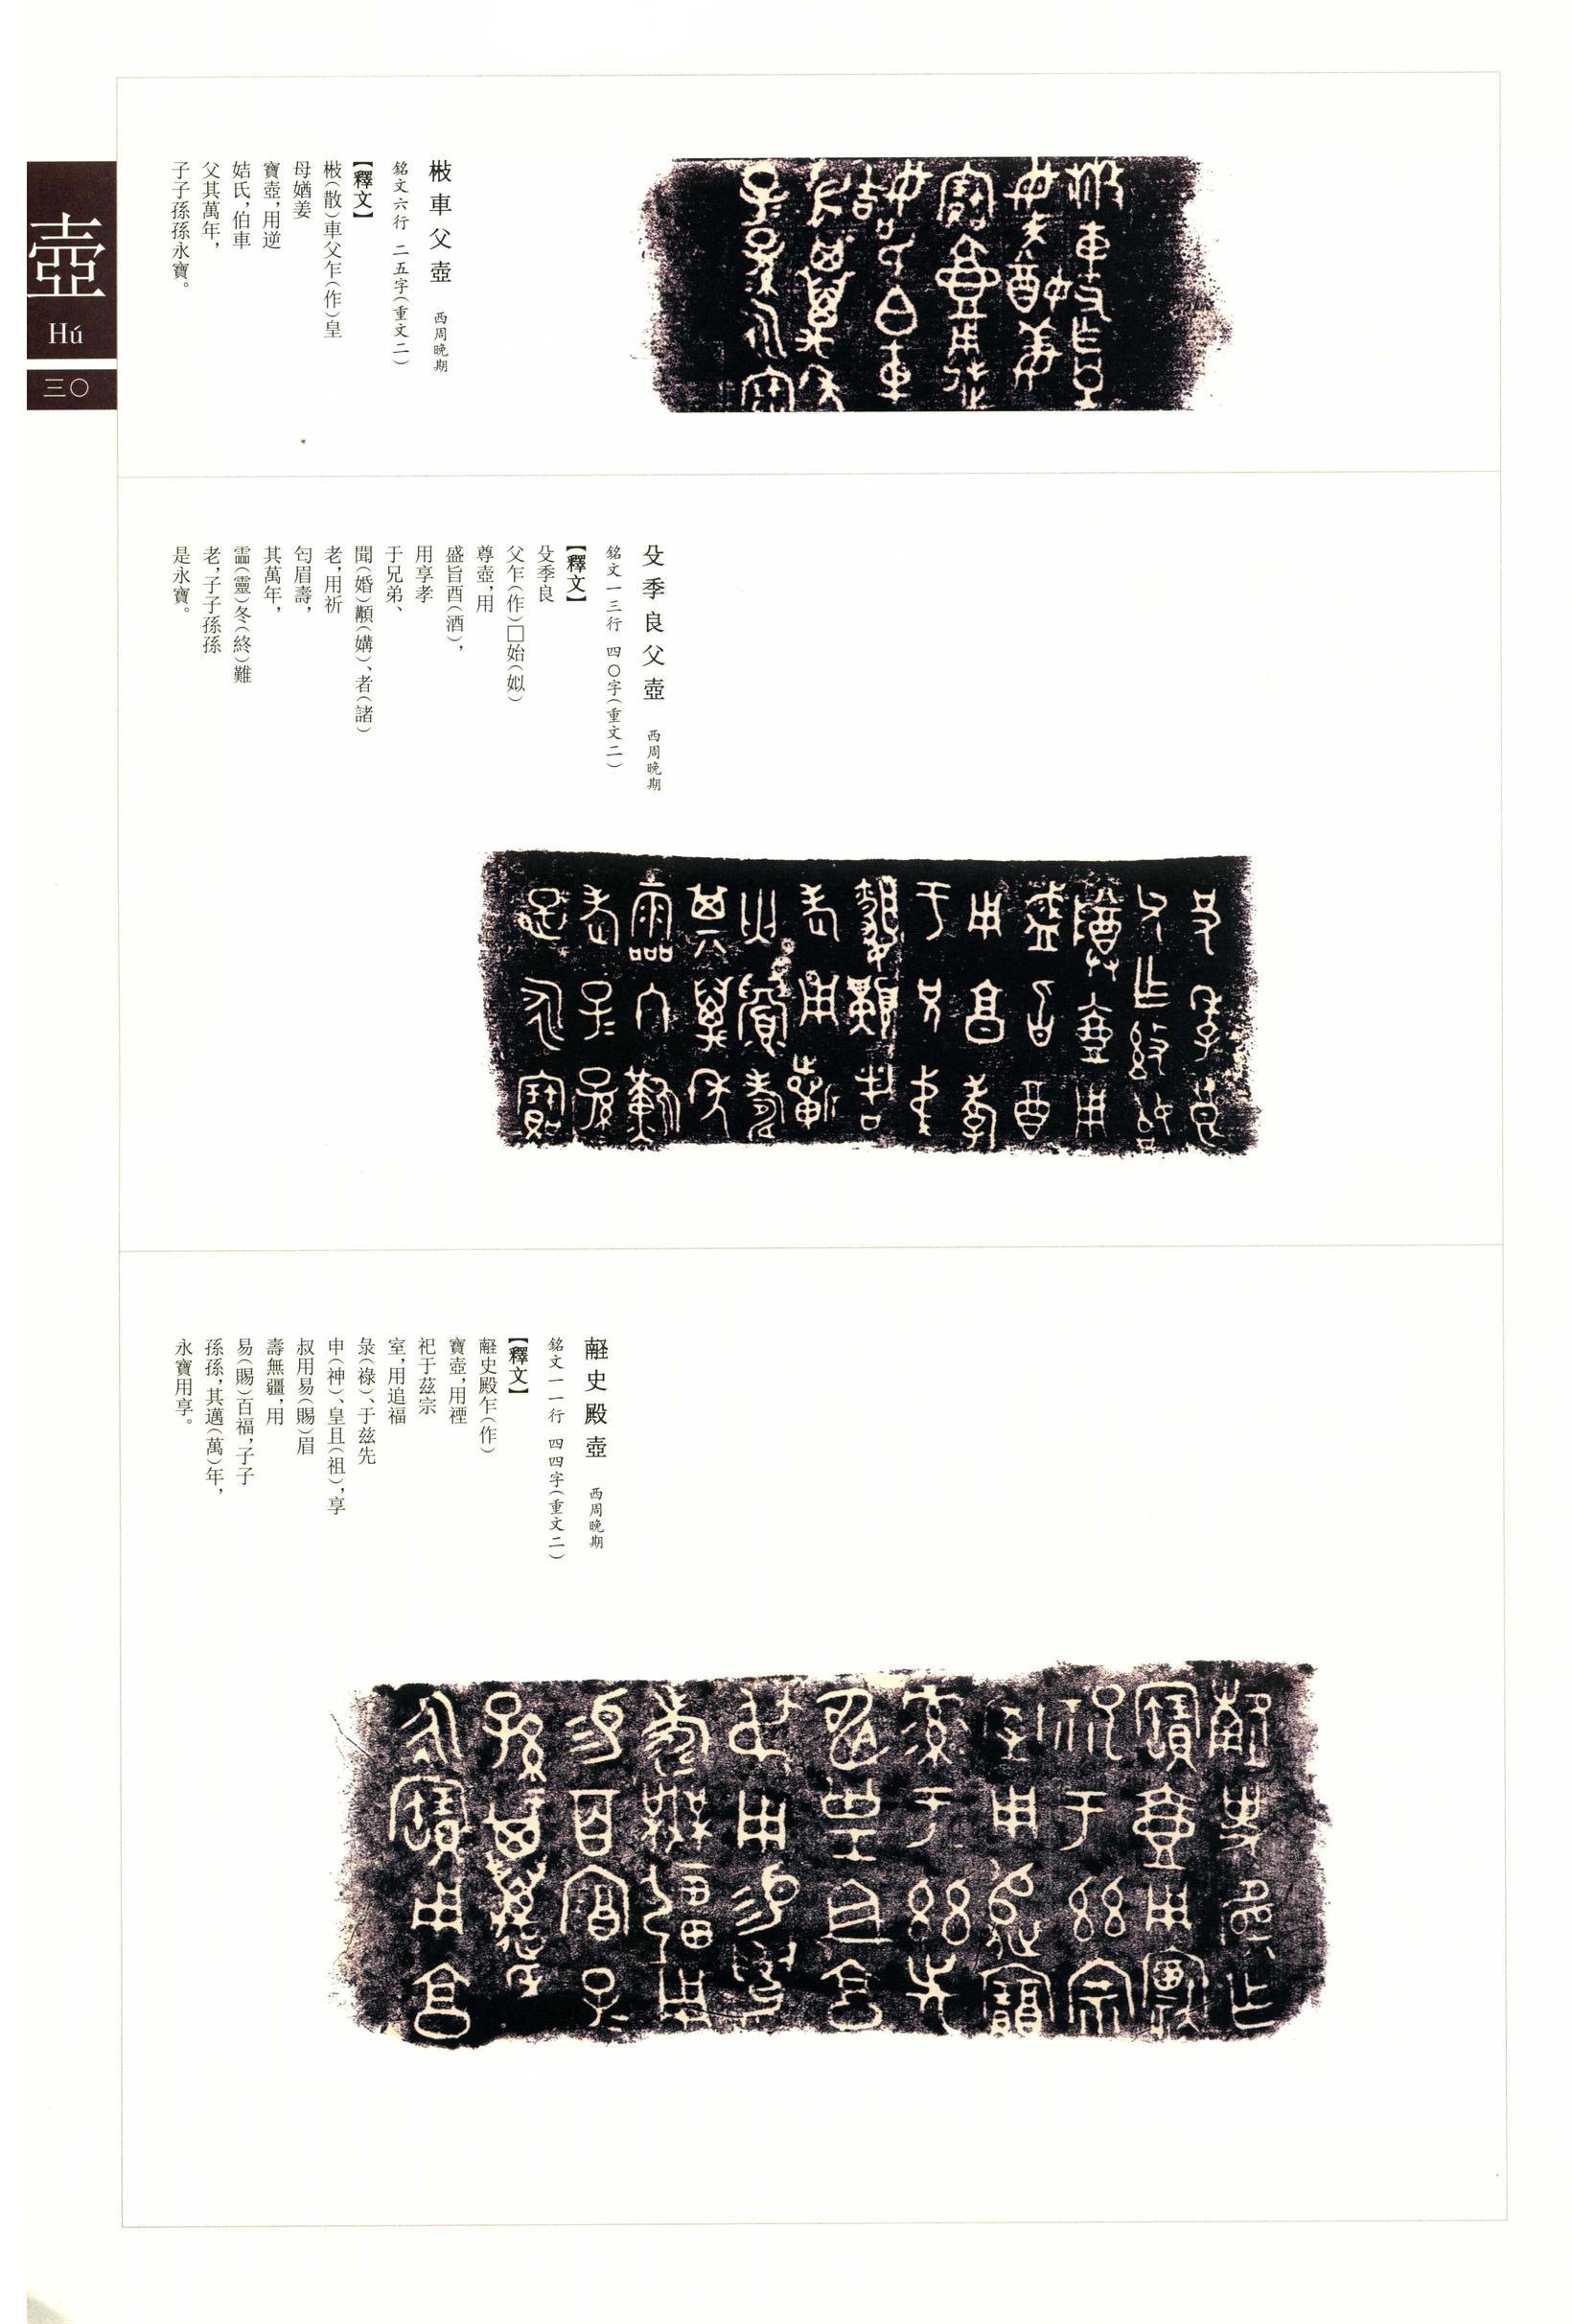 壺
Hú
三〇
㪔車父壺 西周晚期
銘文六行 二五字（重文二）
【釋文】
㪔（散）車父乍（作）皇
母㛗姜
寶壺，用逆
姞氏，伯車
父其萬年，
子子孫孫永寶。
殳季良父壺 西周晚期
銘文一三行 四〇字（重文二）
【釋文】
殳季良
父乍（作）□始（姒）
尊壺，用
盛旨酉（酒），
用享孝
于兄弟、
聞（婚）顜（媾）、者（諸）
老，用祈
匄眉壽，
其萬年，
霝（靈）冬（終）難
老，子子孫孫
是永寶。
史殿壺 西周晚期
銘文一一行 四四字（重文二）
【釋文】
史殿乍（作）
寶壺，用禋
祀于茲宗
室，用追福
彔（祿）、于兹先
申（神）、皇且（祖），享
叔用易（賜）眉
壽無疆，用
易（賜）百福，子子
孫孫，其邁（萬）年，
永寶用享。